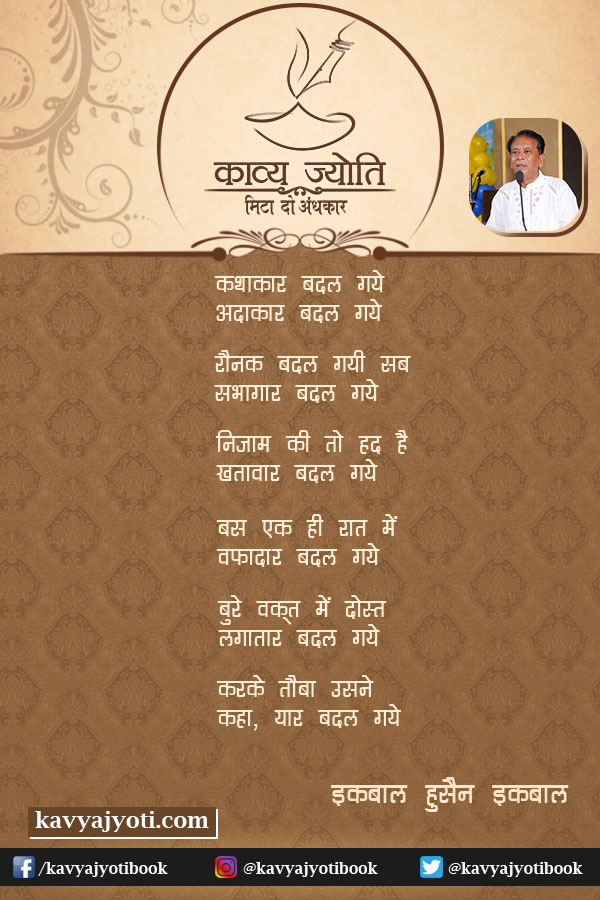 काव्य ज्योति
मिटा दो अंधकार
कथाकार बदल गये
अदाकार बदल गये
रौनक बदल गयी सब
सभागार बदल गये
निजाम की तो हद है
खतावार बदल गये
बस एक ही रात में
वफादार बदल गये
बुरे वक्त में दोस्त
लगातार बदल गये
करके तौबा उसने
कहा, यार बदल गये
इकबाल हुसैन इकबाल
kavyajyoti.com
/kavyajyotibook @kavyajyotibook @kavyajyotibook